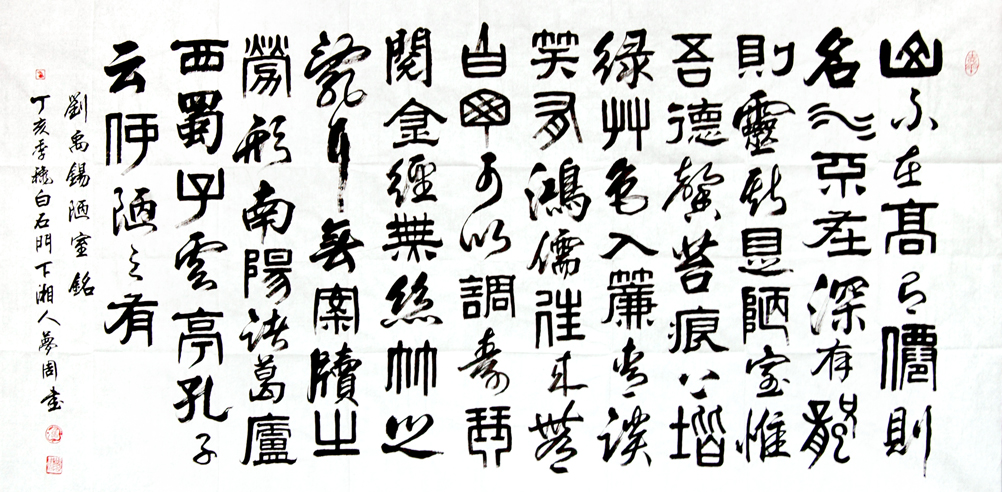 山不在高有僊則
名水不在深有龍
則靈斯是陋室惟
吾德馨苔痕上堦
綠艸色入簾青談
笑有鴻儒往來無
白甲可以調素琴
閱金經無絲竹之
亂耳無案牘之
勞形南陽諸葛廬
西蜀子雲亭孔子
云何陋之有
劉禹錫陋室銘
丁亥季白石門下湘人夢周書